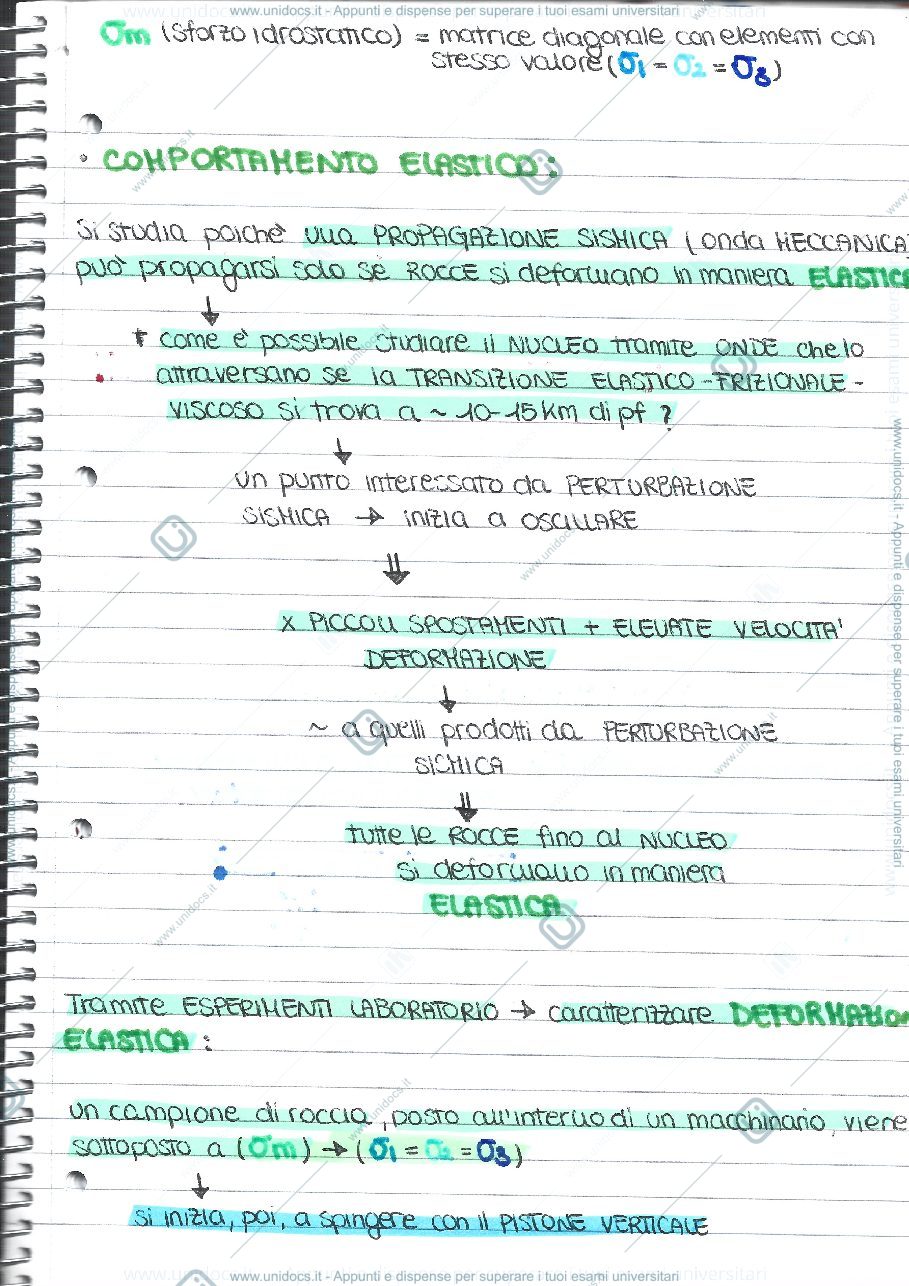 www.unidocs.it - Appunti e dispense per superare i tuoi esami universitari
σm (sforzo idrostatico) = matrice diagonale con elementi con
stesso valore (σ1 = σ2 = σ3)
• COMPORTAMENTO ELASTICO:
Si studia poichè una PROPAGAZIONE SISMICA (onda MECCANICA)
può propagarsi solo se ROCCE si deformano in maniera ELASTICA
↓
+ come è possibile studiare il NUCLEO tramite ONDE che lo
attraversano se la TRANSIZIONE ELASTICO-FRIZIONALE-
VISCOSO si trova a ~ 10-15 km di pf ?
↓
un punto interessato da PERTURBAZIONE
SISMICA → inizia a OSCILLARE
⇓
x PICCOLI SPOSTAMENTI + ELEVATE VELOCITA'
DEFORMAZIONE
↓
~ a quelli prodotti da PERTURBAZIONE
SISMICA
⇓
tutte le ROCCE fino al NUCLEO
si deformano in maniera
ELASTICA
Tramite ESPERIMENTI LABORATORIO → caratterizzare DEFORMAZION
ELASTICA :
un campione di roccia, posto all'interno di un macchinario, viene
sottoposto a (σm) → (σ1 = σ2 = σ3)
↓
si inizia, poi, a spingere con il PISTONE VERTICALE
www.unidocs.it - Appunti e dispense per superare i tuoi esami universitari
www.unidocs.it - Appunti e dispense per superare i tuoi esami universitari